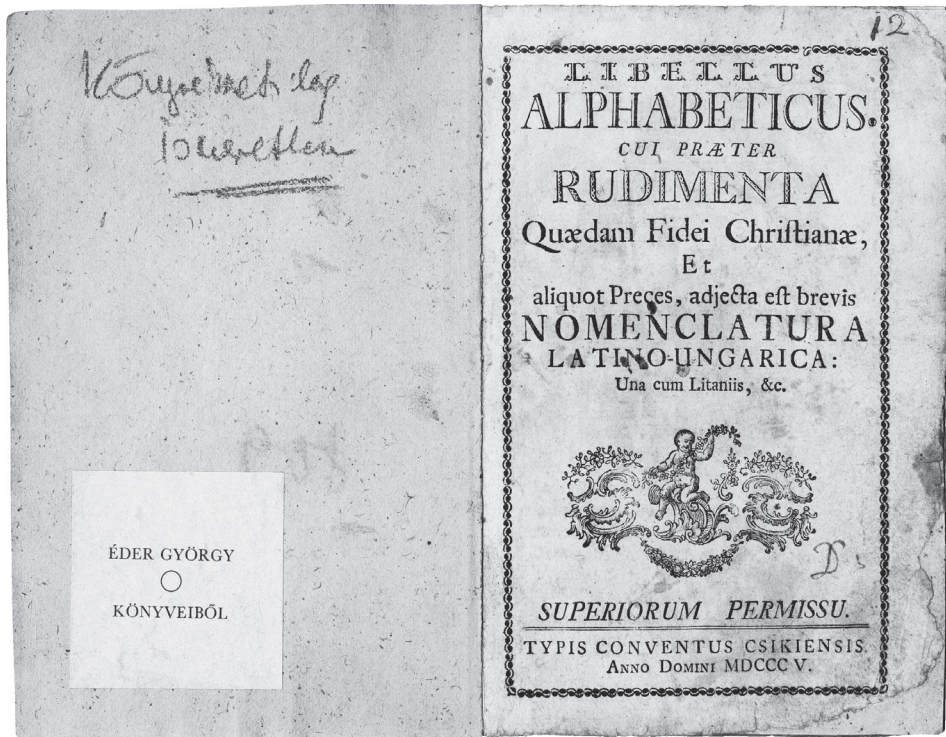 Könyvészetileg
Ismeretlen
ÉDER GYÖRGY
KÖNYVEIBŐL
12
LIBELLUS
ALPHABETICUS.
CUI PRÆTER
RUDIMENTA
Quædam Fidei Chriſtianæ,
Et
aliquot Preces, adjecta eſt brevis
NOMENCLATURA
LATINO-UNGARICA:
Una cum Litaniis, &c.
D:
SUPERIORUM PERMISSU.
TYPIS CONVENTUS CSIKIENSIS.
ANNO DOMINI MDCCC V.